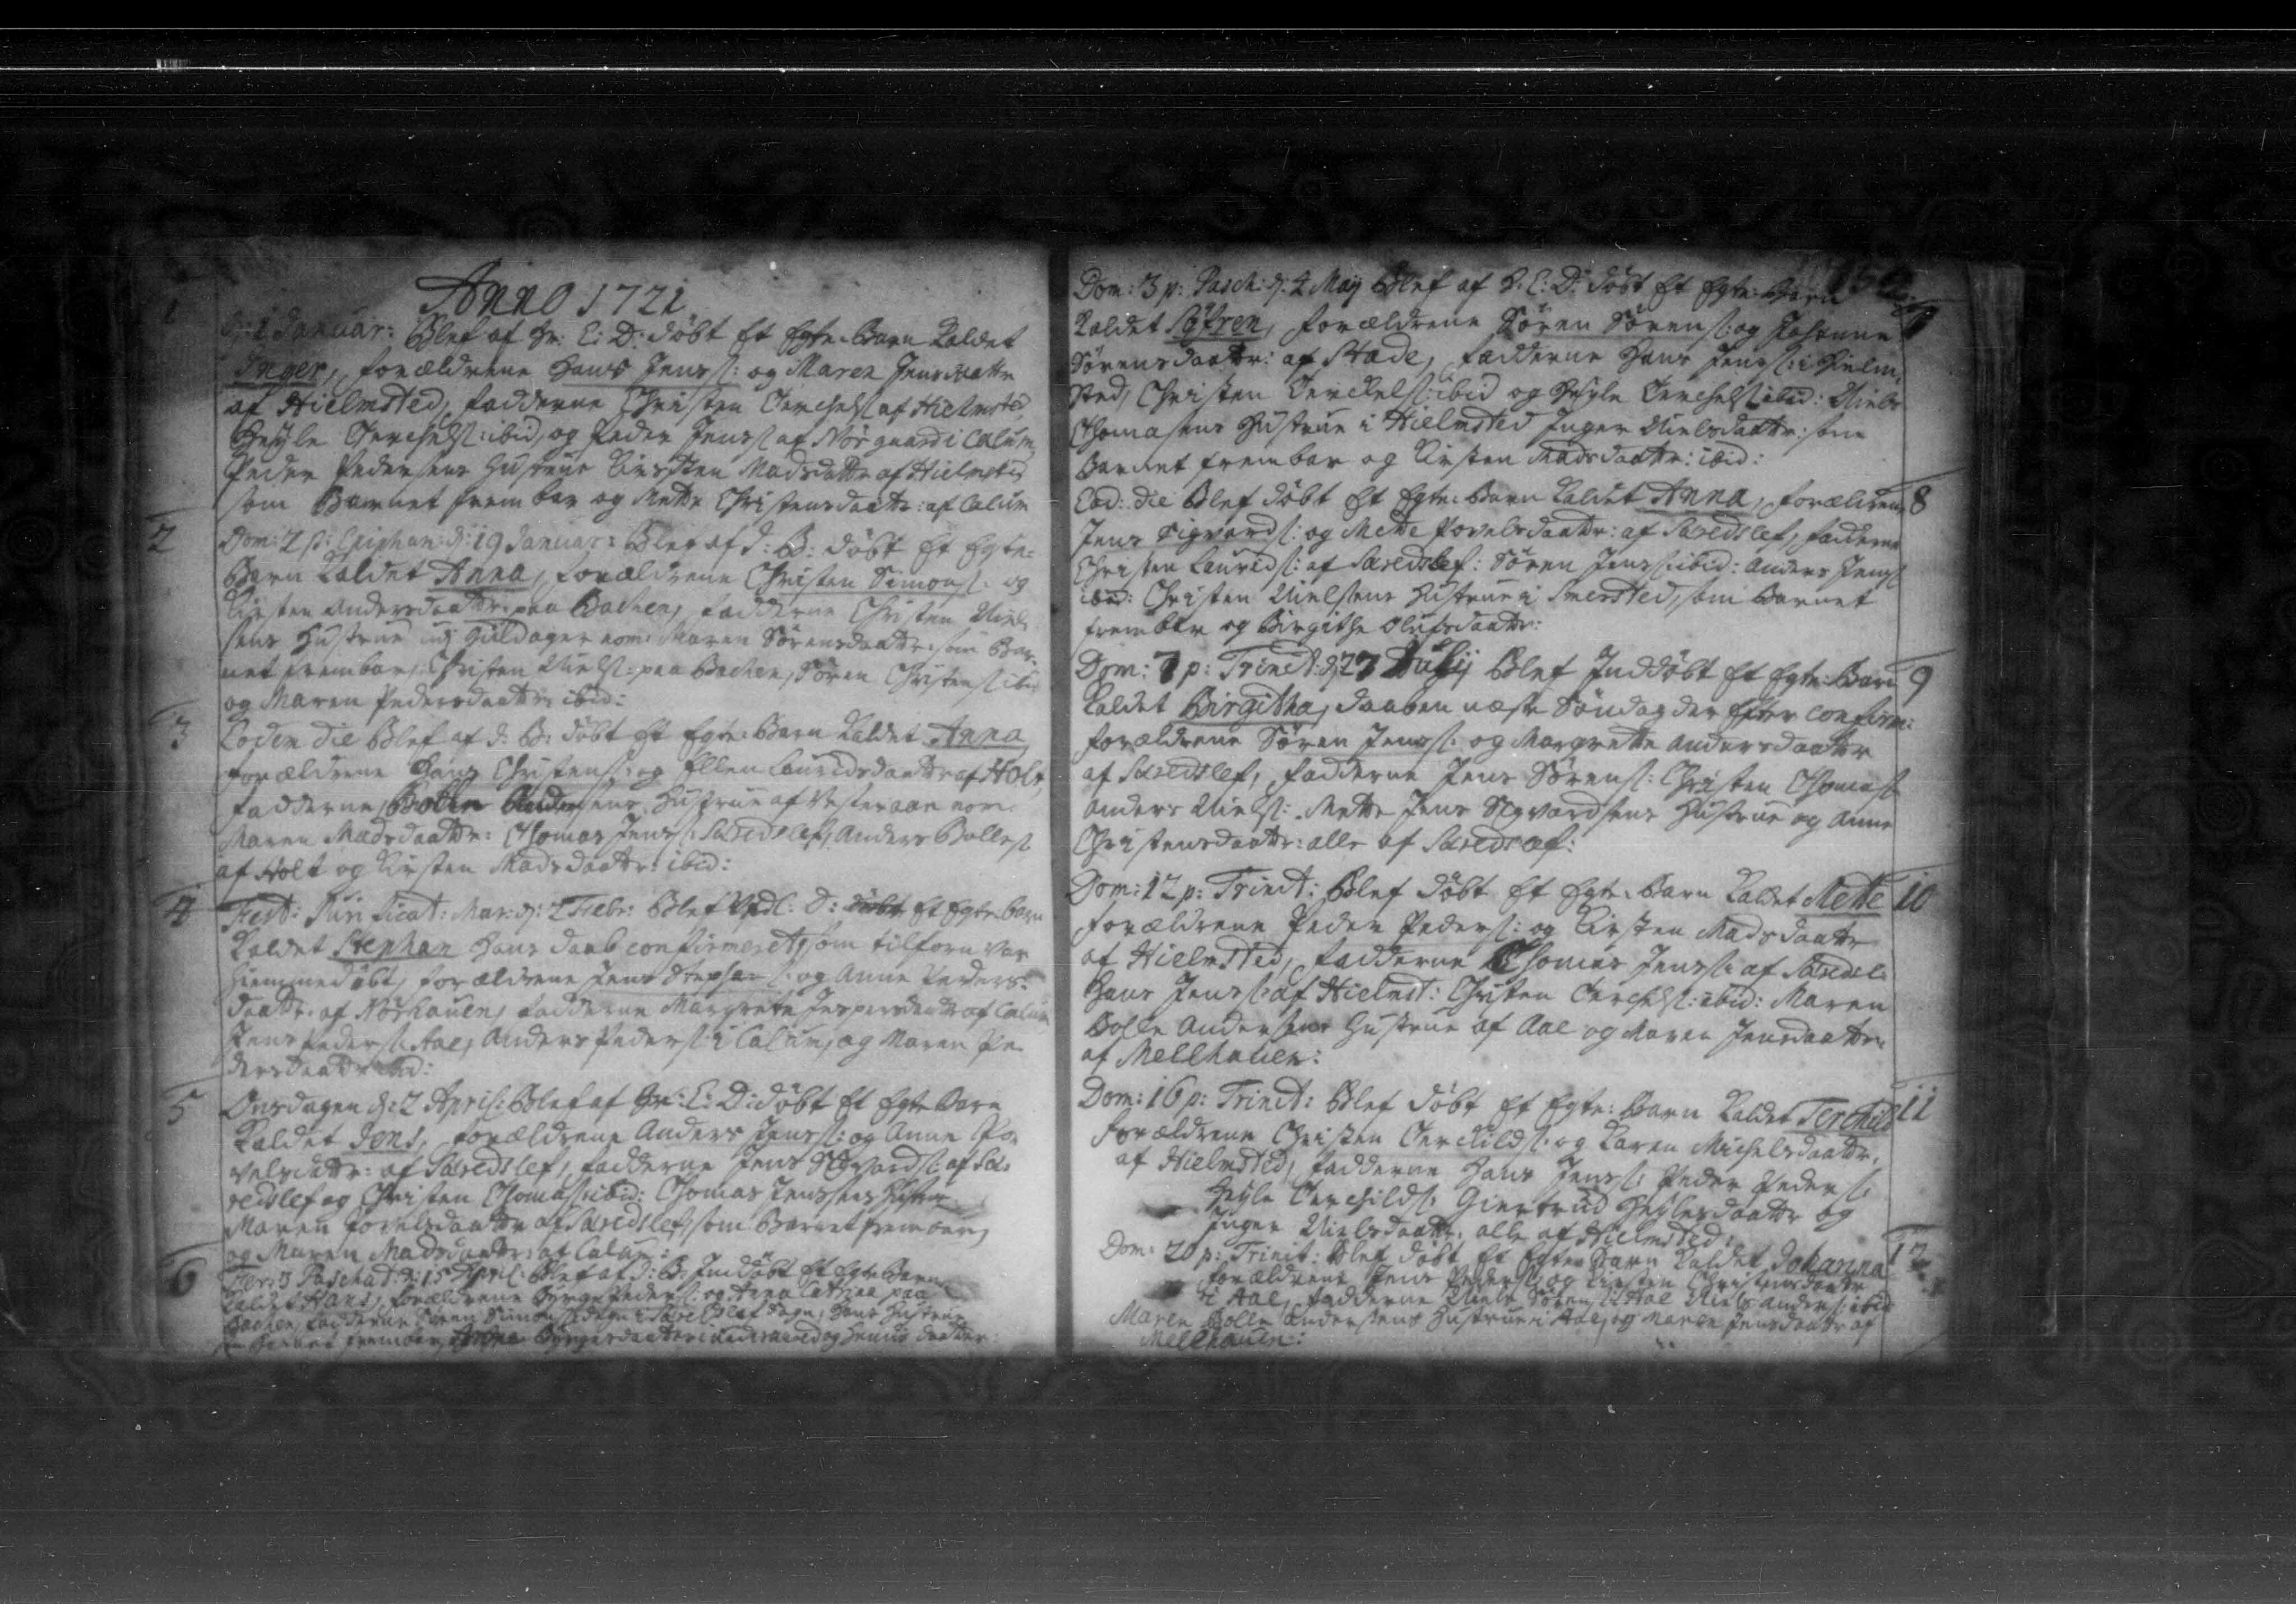 Anno 1721
1
d: 1 Januar: Blef af Hr: C: D: döbt Et Egte Barn Kaldet
Inger, forældrene Hans Jenss: og Maren Jensdatter
af Hielmsted, fadderne Christen Terchels: af Hielmsted
Terchels: ibid, og Peder Jenss: af Nörgaard i Calum
Peder Pedersens Hustrue Kirsten Madsdatter af Hielmsted
som Barnet frembar og Mette Christensdaatter: af Calum
2
Dom: 2 p: Epiphan: d: 19 Januar: Blef af d: B: döbt Et Egte:
Barn Kaldet Anna, forældrene Christen Simons: og
Kirsten Andersdaatter: paa Bachen, fadderne Christen Niel-
sens Hustrue Guldager nom: Maren Sörensdaatter: som Bar-
net frembar, Christen Niels: paa Bachen, Sören Christens: ibid
og Maren Pedersdaatter: ibid:
3
Eodem Die Blef af d: B: döbt Et Egte: Barn Kaldet Anna
forældrene Hans Christens: og Ellen Lauridsdaatter af Holt,
fadderne Hustrue af Vesteraae nom:
Maren Madsdaatter: Thomas Jenss: Særedslef, Anders Bolles:
af Holt og Kirsten Madsdaatter: ibid:
4
Fest: Purificat: Mar: d: 2 Febr: Blef D: döbt Et Egte Barn
Kaldet Stephan Hans daab confirmeret, som tilforn var
hiemmedöbt, forældrene Jens Stephans: og Anne Peders-
daatter: af Nörhauen, fadderne Margrete Jespersdaatter af Calum
Jens Peders: Aae, Anders Peders: i Calum, og Maren Pe-
dersdaatter ibid:
5
Onsdagen d: 2 April: Blef af Hr: C: D: döbt Et Egte Barn
Kaldet Jens, forældrene Anders Jenss: og Anne Po-
velsdatter: af Særedslef, fadderne Jens Sigvards: af Sæ-
redslef og Christen Thomas: ibid: Thomas Jenssens Hustru
Maren Povelsdaatter af Særedslef, som Barnet frembar,
og Maren Madsdaatter: af Calum:
6
Fer: 3 Paschat: d: 15 April: Blef af d: B: Inddöbt Et Egte Barn
Kaldet Hans, forældrene Peders: og Anna Catrine paa
Bachen, fadderne Sören Simons: i Særedslef Sogn, Hans Hustrue
Barnet frembar,
Dom: 3 p: Pasch: d: 4 May Blef af H: C: D: döbt Et Egte: Barn
7
Kaldet Söfren, forældrene Sören Sörens: og Johanne
Sörensdaatter: af Stade, fadderne Hans Jenss: i Hielm-
sted, Christen Terckels: ibid og Terchels: ibid: Niels
Thomasens Hustrue i Hielmsted Inger Nielsdaatter: som
Barnet frembar og Kirsten Madsdaatter: ibid:
Eod: Die Blef döbt Et Egte: Barn Kaldet Anna, forældrene
8
Jens Sigvards: og Mette Povelsdaatter: af Særedslef, fadderne
Christen Laurids: af Særedslef: Sören Jenss: ibid: Anders Jens:
ibid: Christen Nielsens Hustrue i Smersted, som Barnet
frembar og Birgithe Olufsdaatter:
Dom: 7 p: Trinit: d: 27 Julij Blef Inddöbt Et Egte: Barn
9
Kaldet Birgitha, daaben næste Söndag der Efter confirm:
forældrene Sören Jenss: og Margrette Andersdaatter
af Særedslef, fadderne Jens Sörens: Christen Thomas:
Anders Niels: Mette Jens Sigvardsens Hustrue og Anne
Christensdaatter: alle af Særedslef:
Dom: 12 p: Trinit: Blef döbt Et Egte: Barn Kaldet Mette
10
forældrene Peder Peders: og Kirsten Madsdaatter
af Hielmsted, fadderne Thomas Jenss: af Særedsl:
Hans Jenss: af Hielmst: Christen Terchels: ibid: Maren
Bolle Andersens Hustrue af Aae og Maren Jensdaatter
af Mellhauen:
Dom: 16 p: Trinit: Blef döbt Et Egte: Barn Kaldet Terchild
11
forældrene Christen Terckilds: og Karen Michelsdaatter:
af Hielmsted, fadderne Hans Jenss: Peder Peders:
Terchilds: Giertrud og
Inger Nielsdaatter: alle af Hielmsted:
Dom: 20 p: Trinit: Blef döbt Et Egte Barn Kaldet Johanna
12
forældrene Jens Peders: og Kirsten Christensdaatter
i Aae, fadderne Niels Sörens: i Aae Niels Anders: ibid
Maren Bolle Andersens Hustrue i Aae, og Maren Jensdaatter af
Mellhauen: